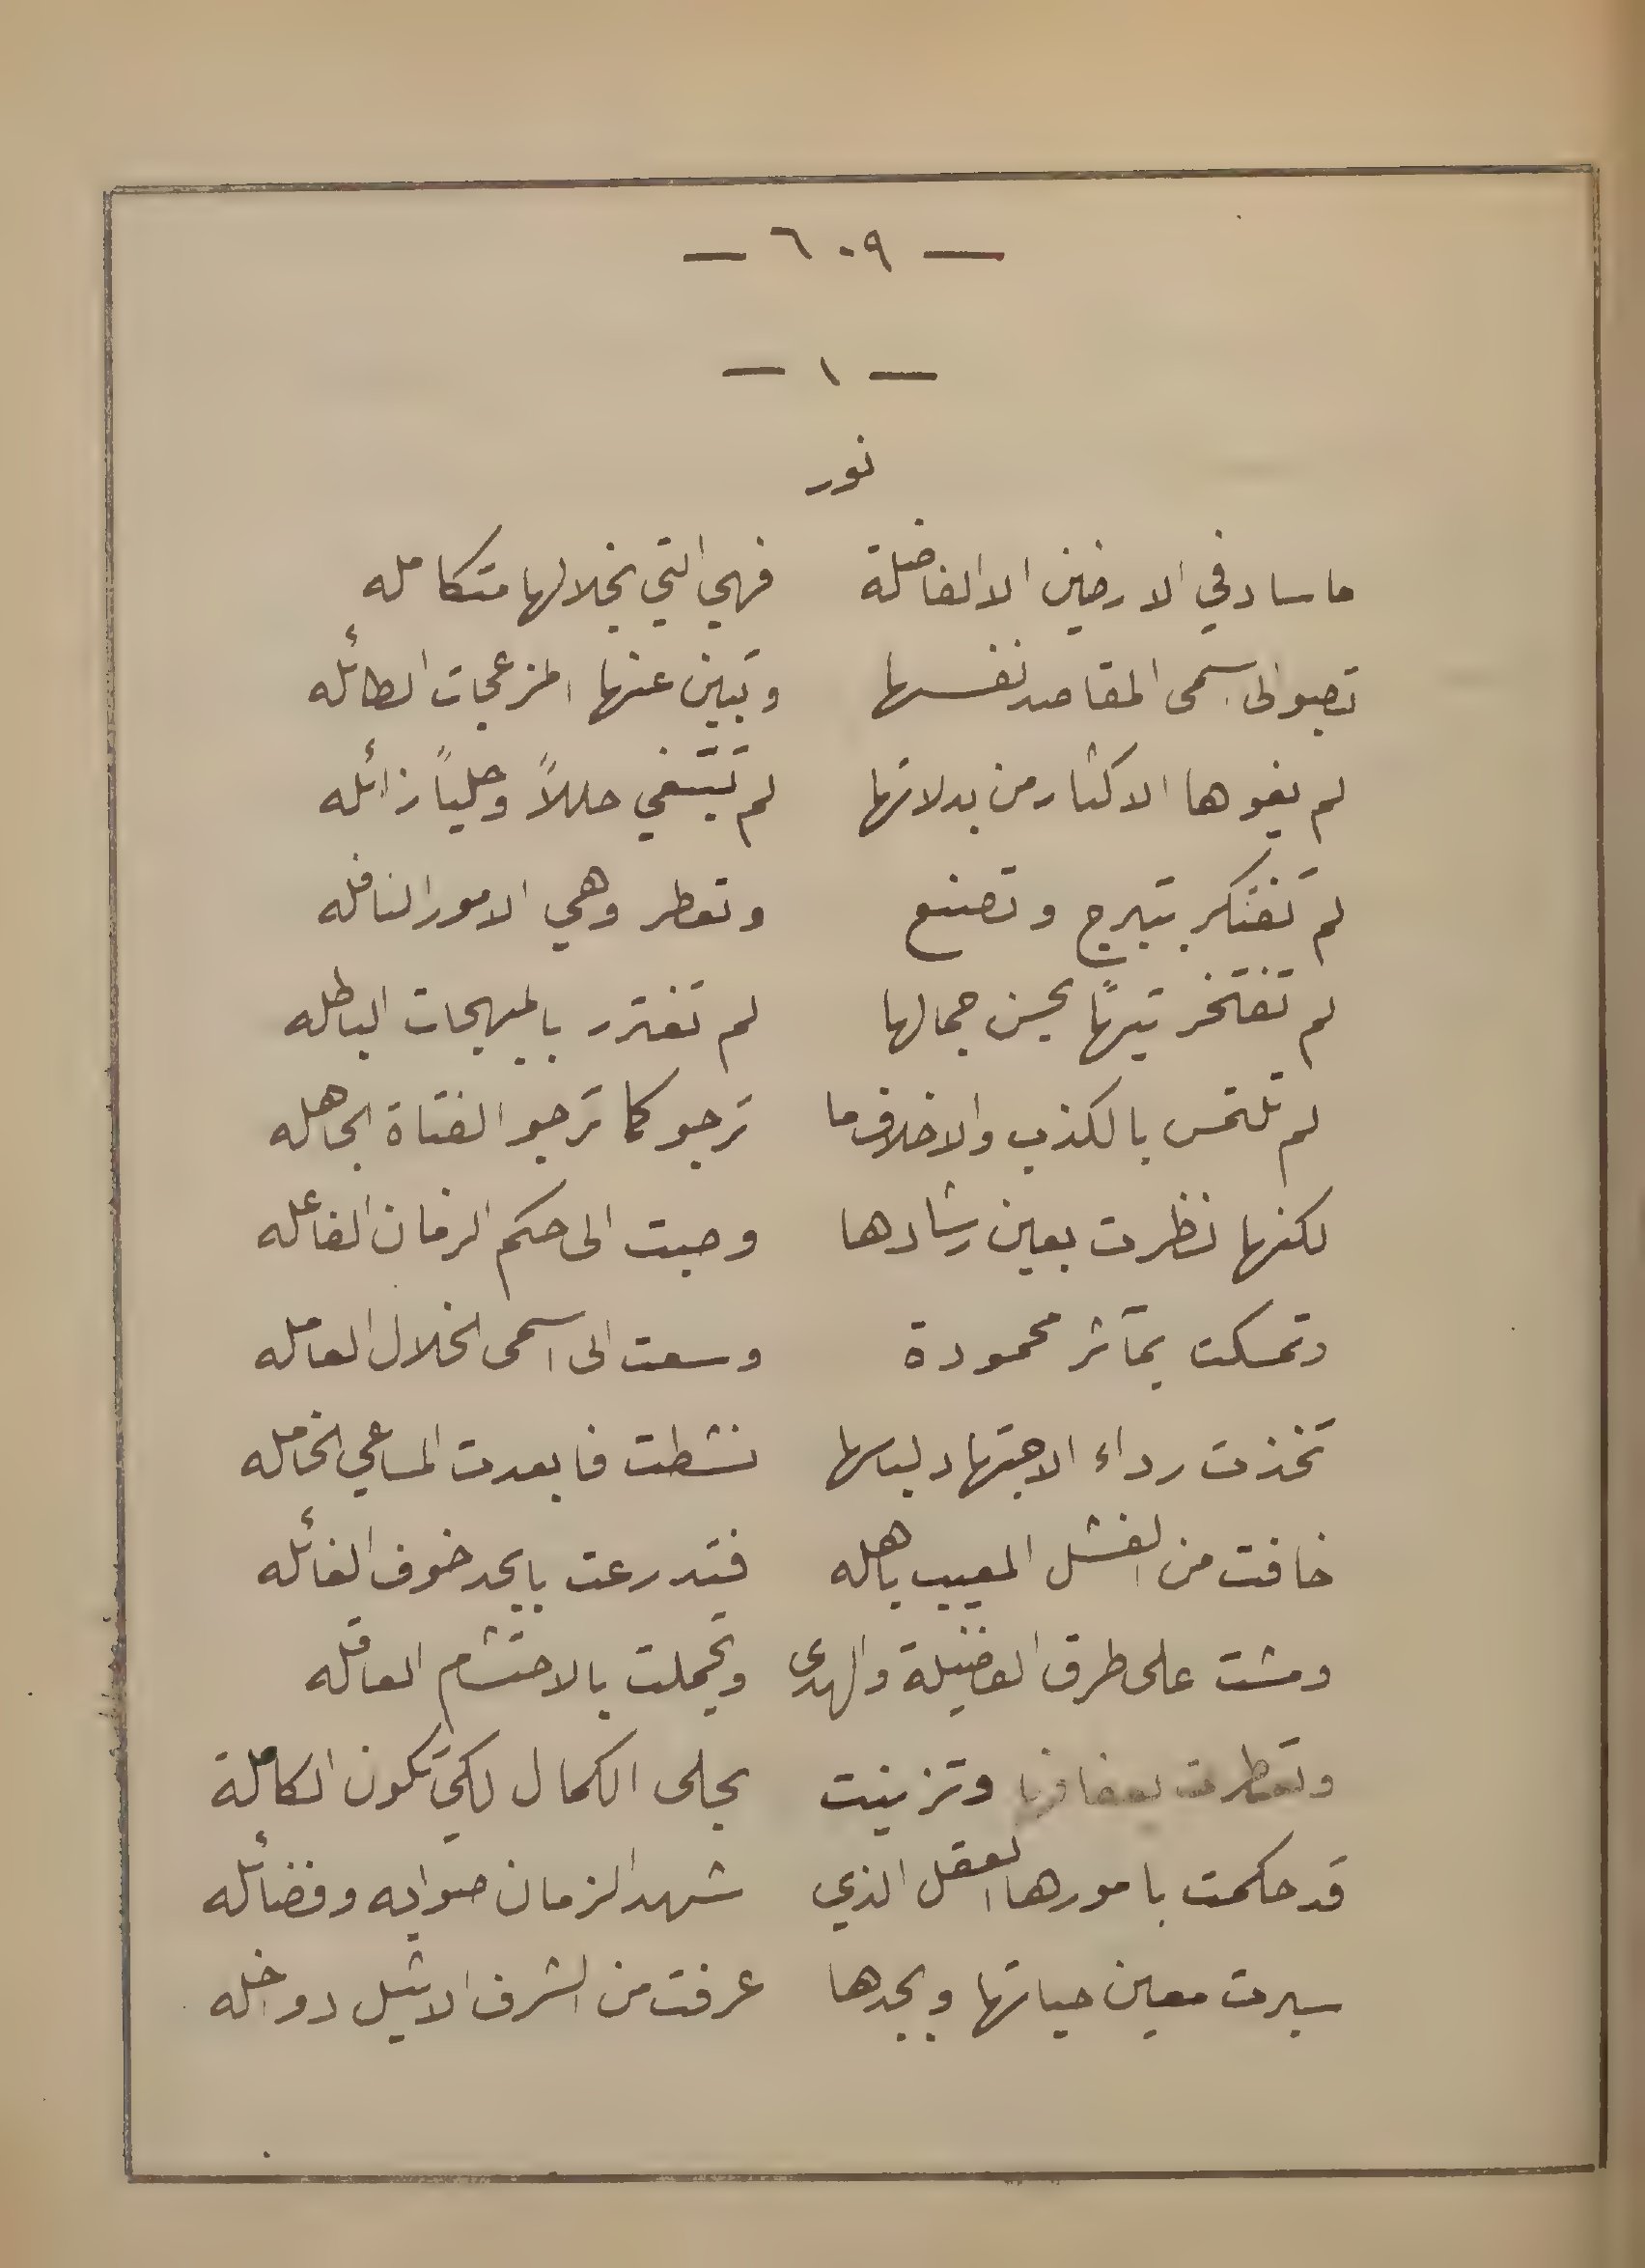 — ٦٠٩ —
— ١ —
نور
ما ساد في الارضين الا الفاضلة فهي التي بخلالها متكامله
تصبو الى اسمى المقاصد نفسها وتبين عنها المزعجات الطائله
لم يغوها الاكثار من بدلاتها لم تبتغي حللاً وحلياً زائله
لم تفتكر بتبرج وتصنع وتعطر وهي الامور النافله
لم تفتخر تيهًا بحسن جمالها لم تغترر بالمبهجات الباطله
لم تلتمس بالكذب والاخلاف ما ترجو كما ترجو الفتاة الجاهله
لكنها نظرت بعين رشادها وصبت الى حكم الزمان الفاعله
وتمسكت بمآثر محمودة وسعت الى اسمى الخلال العامله
تخذت رداء الاجتهاد لباسها نشطت فابعدت المساعي الخامله
خافت من الفشل المعيب باهله فتدرعت بالجد خوف الغائله
ومشت على طرق الفضيلة والهدى وتجملت بالاحتشام العاقله
وتعطرت بعفافها وتزينت بحلى الكمال لكي تكون الكاملة
قد حكمت بامورها العقل الذي شهد الزمان صوابه وفضائله
سبرت معين حياتها وبجدها عرفت من الشرف الاثيل دواخله